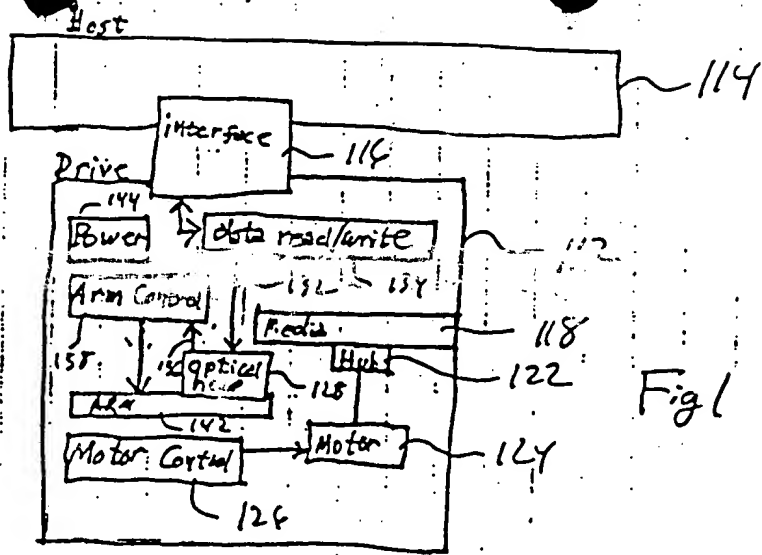 Host
114
interface
116
Drive
144
Power
data read/write
112
132 134
Arm Control
Media
118
138
optical
128
Hub
122
Arm
142
Motor Control
Motor
124
126
Fig 1